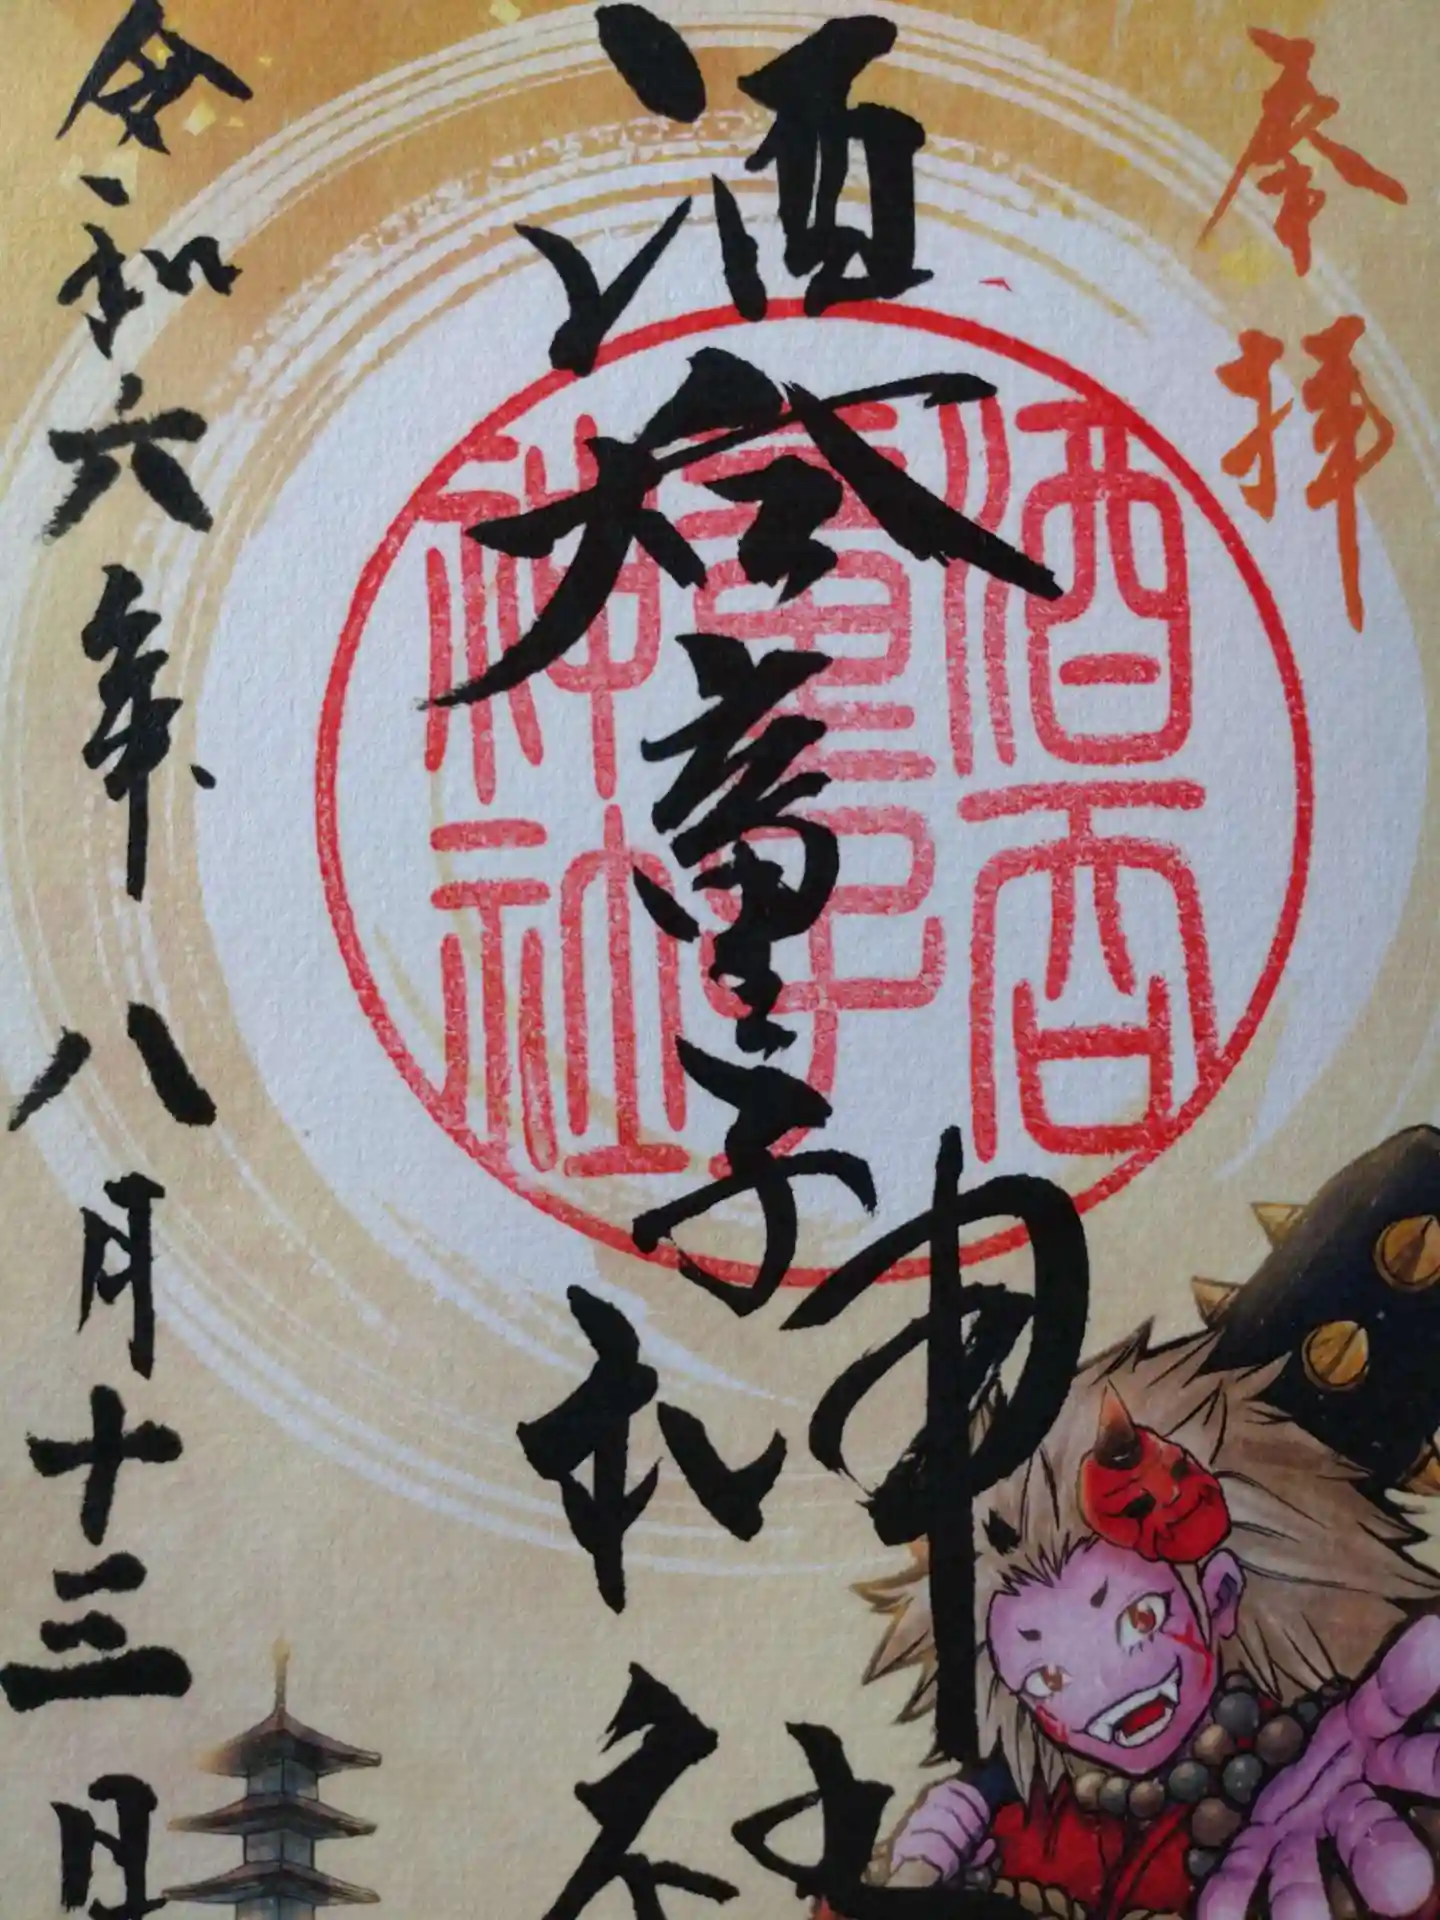 奉拝
酒呑童子神社
酒呑
童子
神社
令和六年八月十三日